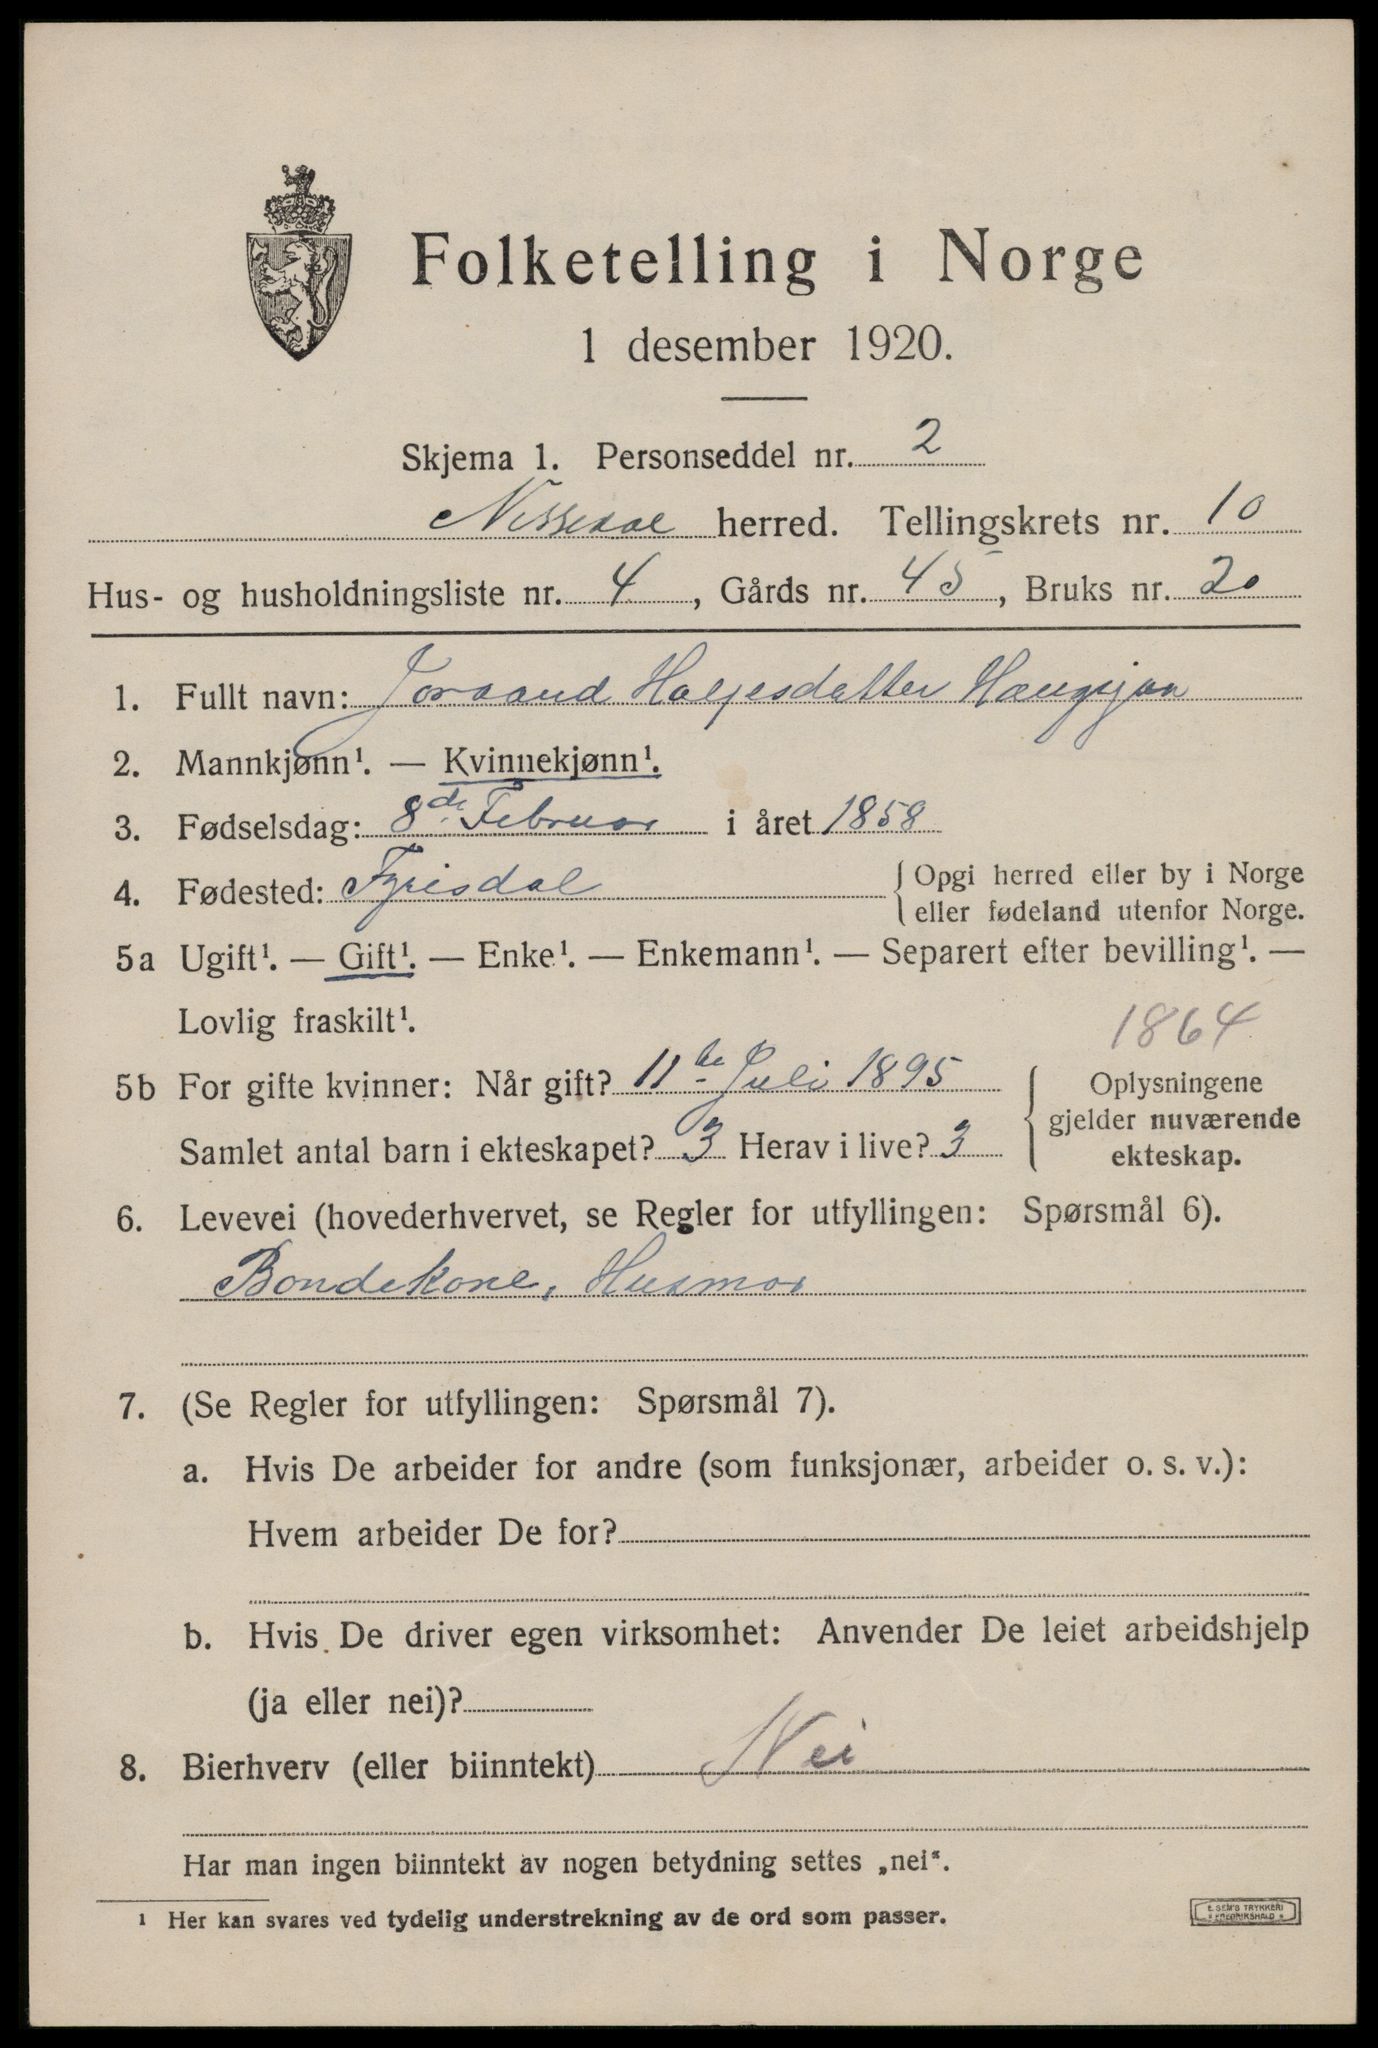 Folketelling i Norge
1 desember 1920.
Skjema 1. Personseddel nr. 2
Nissedal herred. Tellingskrets nr. 10
Hus- og husholdningsliste nr. 4, Gårds nr. 45, Bruks nr. 20
1. Fullt navn: Joraand Halgesdatter Haugsjaa
2. Mannkjønn¹. — Kvinnekjønn¹.
3. Fødselsdag: 8de Februar i året 1858
4. Fødested: Fyrisdal { Opgi herred eller by i Norge
eller fødeland utenfor Norge.
5a Ugift¹. — Gift¹. — Enke¹. — Enkemann¹. — Separert efter bevilling¹. —
Lovlig fraskilt¹.
1864
5b For gifte kvinner: Når gift? 11te Juli 1895
Samlet antal barn i ekteskapet? 3 Herav i live? 3
{ Oplysningene
gjelder nuværende
ekteskap.
6. Levevei (hovederhvervet, se Regler for utfyllingen: Spørsmål 6).
Bondekone, Husmor
7. (Se Regler for utfyllingen: Spørsmål 7).
a. Hvis De arbeider for andre (som funksjonær, arbeider o. s. v.):
Hvem arbeider De for?
b. Hvis De driver egen virksomhet: Anvender De leiet arbeidshjelp
(ja eller nei)?
8. Bierhverv (eller biinntekt) Nei
Har man ingen biinntekt av nogen betydning settes „nei".
¹ Her kan svares ved tydelig understrekning av de ord som passer.
E. SEM'S TRYKKERI
* FREDRIKSHALD *